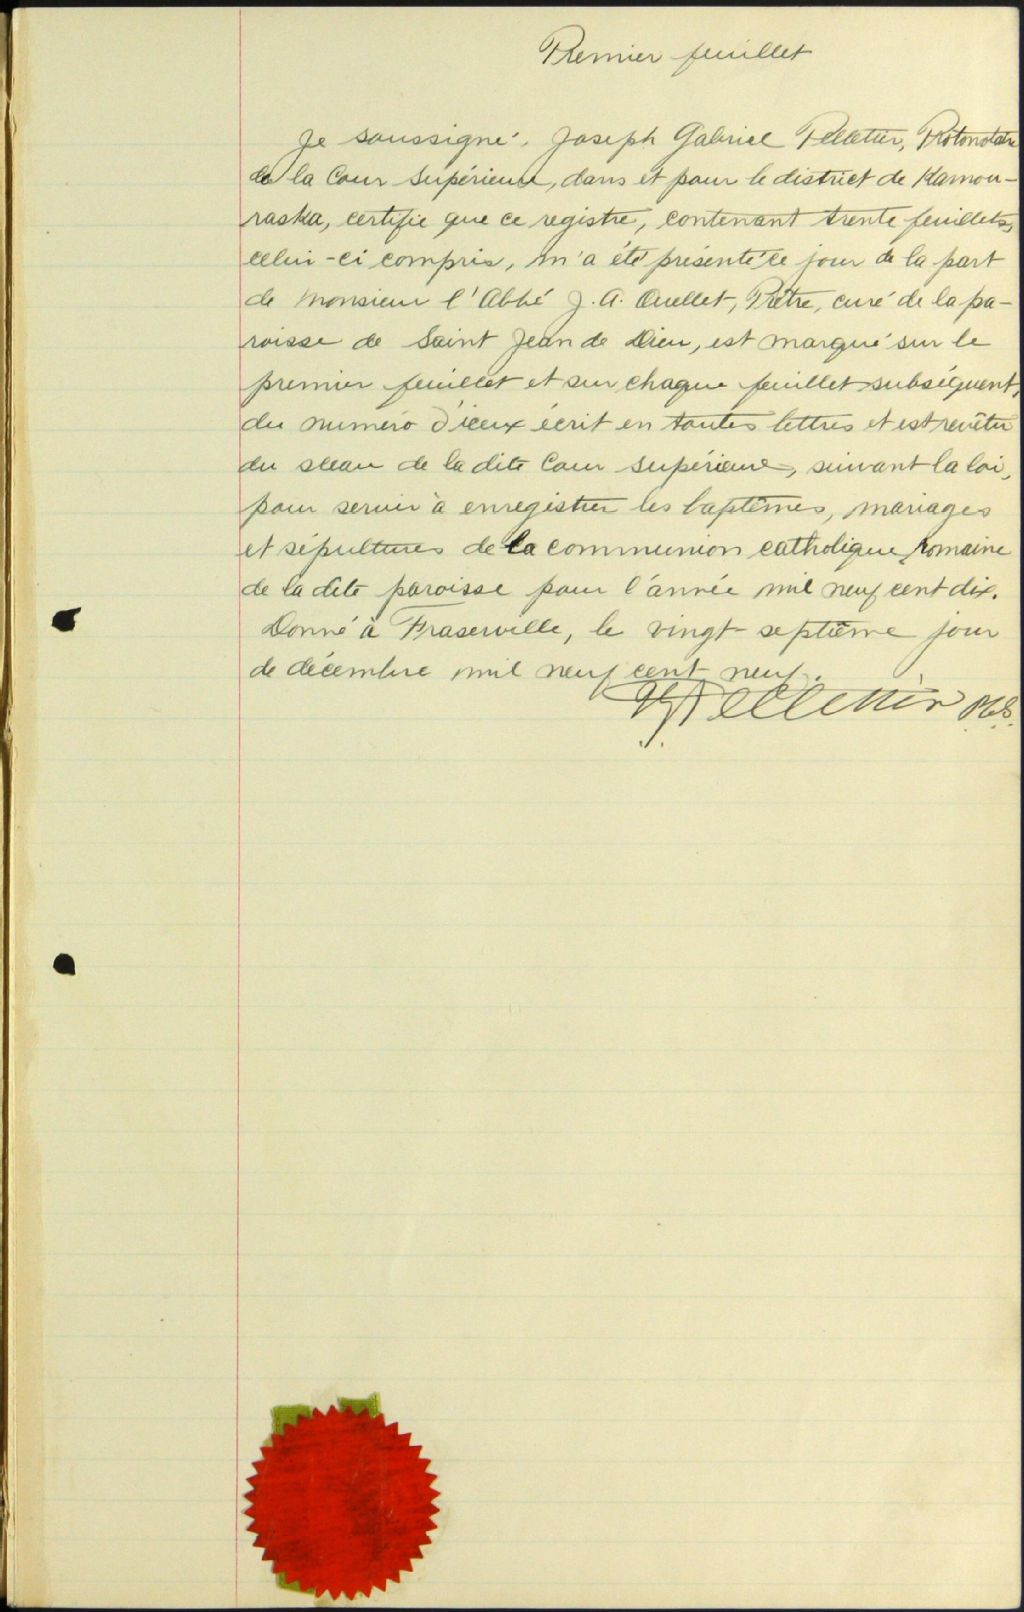 Premier feuillet
Je soussigné, Joseph Gabriel Pelletier, Protonotaire
de la Cour Supérieure, dans et pour le district de Kamou-
raska, certifie que ce registre, contenant trente feuillets,
celui-ci compris, m'a été présenté ce jour de la part
de Monsieur l'Abbé J. A. Ouellet, Prêtre, curé de la pa-
roisse de Saint Jean de Dieu, est marqué sur le
premier feuillet et sur chaque feuillet subséquent,
du numéro d'iceux écrit en toutes lettres et est revêtu
du sceau de la dite Cour Supérieure, suivant la loi,
pour servir à enregistrer les baptêmes, mariages
et sépultures de la communion catholique romaine
de la dite paroisse pour l'année mil neuf cent dix.
Donné à Fraserville, le vingt-septième jour
de décembre mil neuf cent neuf.
Pelletier P.C.S.